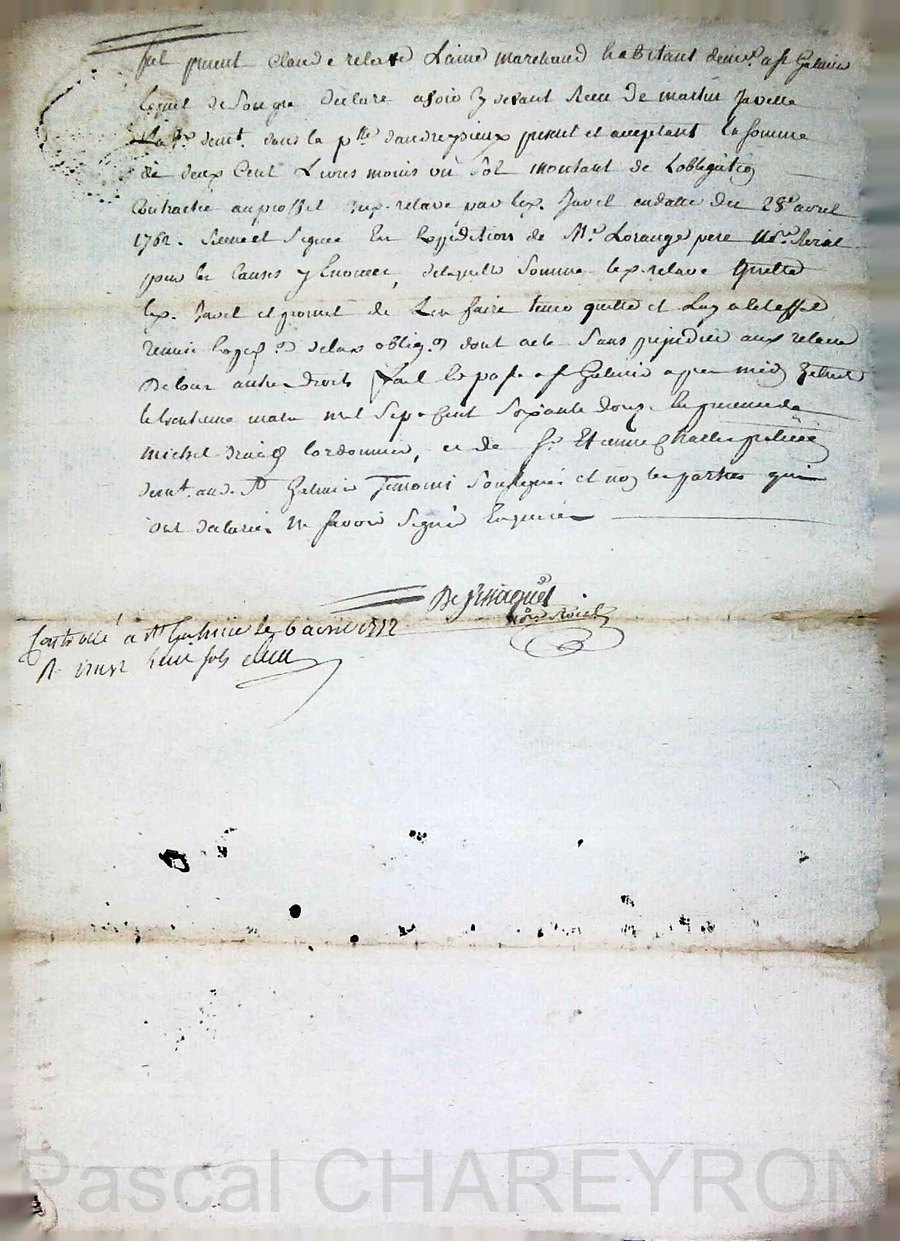 fut present Claude relave Laine marchand habitant demt. a st Galmier
lequel de Son gre declare avoir cy devant Receu de martin Javelle
lab.r demt. dans la p.sse dandrezieux present et acceptant la Somme
de deux Cent Livres moins un Sol montant de Lobligation
Contractée au proffit dud. relave par led. Javel en datte du 28e avril
1762. Receue et Signée En Expedition de Me. Lorange pere no.re Roial
pour les Causes y Enoncées, delaquelle Somme led. relave Quitte
led. Javel et promet de Len faire tenir quitte et Luy a a leffet
remise Lexp.on delad. oblig.on dont acte Sans prejudice aud. relave
De Leur autres droits fait et passé a st Galmier apres midy
le trente une mars mil Sept Cent Soixante douze En presence de
michel Cordonnier, et de Sr. Etienne
demt. aud. St. Galmier Temoins Soussignés et non les parties qui
ont declarées Ne Scavoir Signer Enquises
no.re Roial
Controllé a st Galmier le 6 avril 1772
R. vingt huit sols
Pascal CHAREYRON